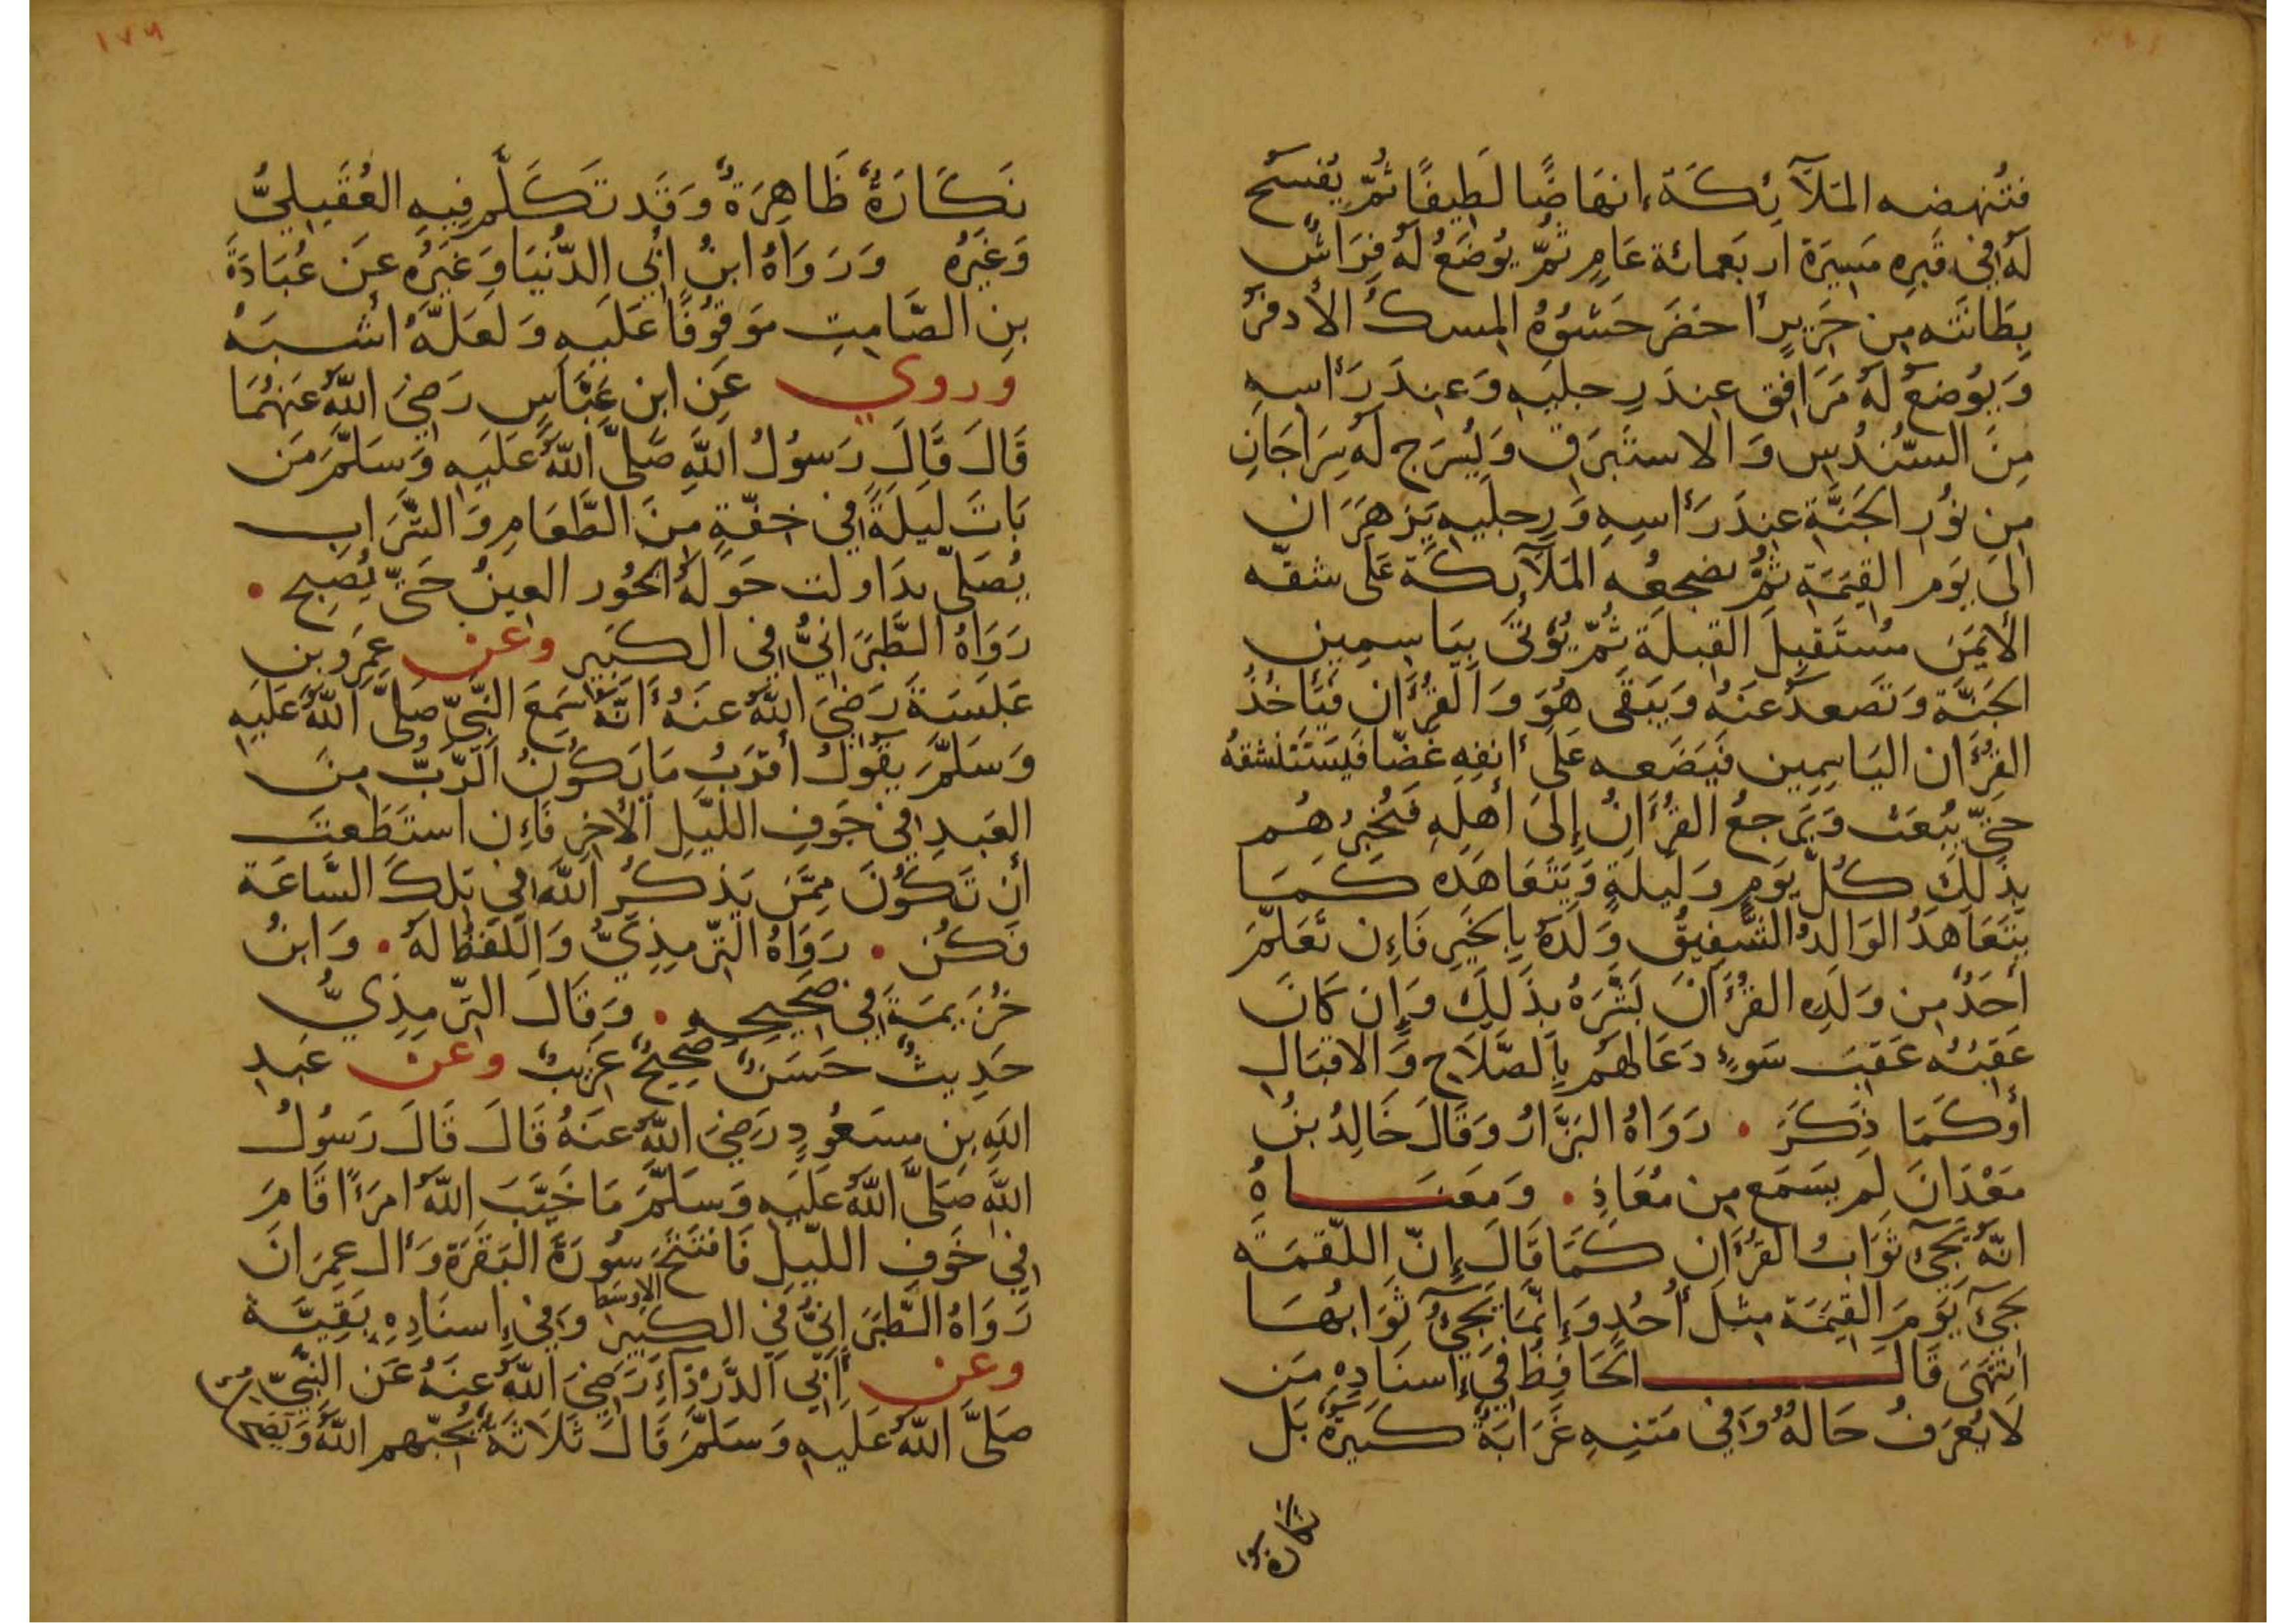 فتُنهضه المَلآئِكَة انهَاضًا لَطِيفًا ثُمّ يُفسَح
لَهُ فِي قَبرِهِ مَسِيرَة اربَعمائة عَامٍ ثُمّ يُوضَعُ لَهُ فِرَاشٌ
بِطَانَتَه مِن حَرِيرٍ اخضَر حَشْوُهُ المِسكُ الأَدفَر
وَيُوضعُ لَهُ مَرَافِق عِندَ رِجليهِ وَعِندَ رَأسِهِ
مِنَ السّندُس وَالاستَبرَق وَيُسرَج لَهُ سِرَاجَانِ
مِن نُورِ الجَنّةِ عِندَ رَأسِهِ وَرِجليهِ يَزهَرَان
الَى يَوم القِيمَة ثُمّ يضجِعُه المَلآئِكَة عَلَى شقّه
الأيمَن مُستَقبِلَ القِبلَة ثُمّ يُؤتَى بِيَاسِمِين
الجَنّة وَتَصعدُ عَنهُ وَيَبقَى هُوَ وَالقُرءَان فَيَأخُذُ
القُرءَان اليَاسِمِين فَيَضَعه عَلَى أنفِهِ غَضّا فَيَستَنشقهُ
حَتّى يُبعَث وَيَرجعُ القُرءَانُ إلَى أهلِهِ فَيُخبِرُهُم
بِذَلِكَ كُلّ يَومٍ وَلَيلَةٍ وَيَتَعَاهَده كَمَا
يَتَعَاهَدُ الوَالدُ الشّفِيقُ وَلَدَهُ بِالخَيرِ فَإن تَعَلّمَ
أحَدٌ مِن وَلَدِهِ القُرءَانَ بَشّرَهُ بِذَلِكَ وَإن كَانَ
عَقِبُه عَقِبَ سَوءٍ دَعَا لهُم بِالصّلَاح وَالاقبَال
أوكَمَا ذَكَرَ • رَوَاهُ البَزّارُ وَقَالَ خَالِدُ بنُ
مَعْدَانَ لَم يَسمَع مِن مُعَاذٍ • وَمَعنَاهُ
انّهُ يَجيءُ ثَوَابُ القُرءَان كَمَا قَالَ إنّ اللّقمَة
تَجيءُ يَومَ القِيمَة مِثلَ أُحُدٍ وَإنّمَا يَجيءُ ثَوَابُهَا
انتَهَى قَالَ الحَافِظُ فِي إسنَادِهِ مَن
لَا يُعرَفُ حَالهُ وَفِي مَتنِهِ غَرَابَةٌ كَثيرَةٌ بَل
نكارة
١٧٦
نَكَارَةٌ ظَاهِرَةٌ وَقَد تَكَلّمَ فِيهِ العُقَيليُّ
وَغَيرُه وَرَوَاهُ ابنُ ابِي الدّنيَا وَغَيرُه عَن عُبَادَةَ
بنِ الصّامِتِ مَوقُوفًا عَلَيهِ وَلَعَلّهُ أشبَه
وروي عَنِ ابن عَبّاسٍ رَضِيَ اللهُ عَنهُمَا
قَالَ قَالَ رَسُولُ اللهِ صَلّى اللهُ عَلَيهِ وَسَلّمَ مَن
بَاتَ لَيلَةً فِي خِفّةٍ مِنَ الطّعَامِ وَالشّرَاب
يُصَلّي تدَاولت حَولهُ الحُور العِينُ حَتّى يُصبِح •
رَوَاهُ الطّبَرَانِيُّ فِي الكَبِير وعن عَمرِو بنِ
عَبَسَةَ رَضِيَ اللهُ عَنهُ أنّهُ سَمِعَ النّبيّ صَلّى اللهُ عَلَيهِ
وَسَلّمَ يَقُولُ أقرَبُ مَا يَكُونُ الرّبُّ مِنَ
العَبدِ فِي جَوفِ اللّيلِ الأَخِرِ فَإن استَطَعتَ
أن تَكُونَ مِمّن يَذكُرُ اللهَ فِي تِلكَ السّاعَة
فَكُن • رَوَاهُ التّرمِذِيُّ وَاللفظُ لهُ • وَابنُ
خُزَيمَةَ فِي صَحِيحِهِ • وَقَالَ التّرمِذِيُّ
حَدِيثٌ حَسَنٌ صَحِيحٌ غَرِيبٌ وعن عَبدِ
اللهِ بن مَسعُودٍ رَضِيَ اللهُ عَنهُ قَالَ قَالَ رَسُولُ
اللهِ صَلّى اللهُ عَلَيهِ وَسَلّمَ مَا خَيّبَ اللهُ امرَءًا قَامَ
فِي جَوفِ اللّيلِ فَافتَتَحَ سُورَةَ البَقَرَة وَءَال عِمرَانَ
رَوَاهُ الطّبَرَانِيُّ فِي الكَبِير الاوسط وَفِي إسنَادِهِ بَقِيّة
وعن أبِي الدّرْدَاءِ رَضِيَ اللهُ عَنهُ عَن النّبيّ
صَلّى اللهُ عَلَيهِ وَسَلّمَ قَالَ ثَلَاثَةٌ يُحبّهم اللهُ وَيَضحك